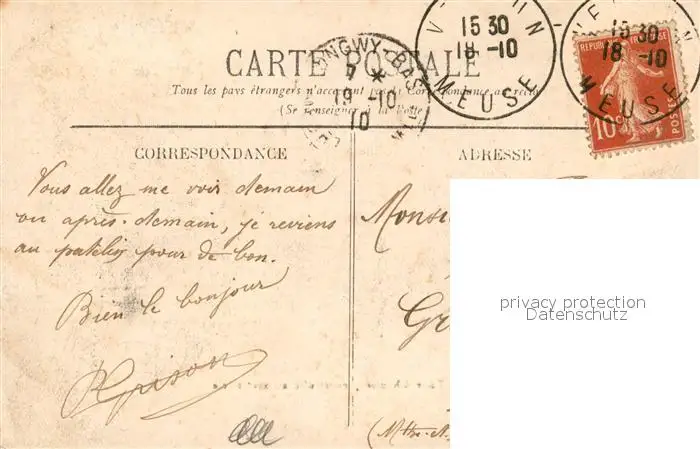 CARTE POSTALE
Tous les pays étrangers n'acceptent pas la Correspondance au recto
(Se renseigner à la Poste)
CORRESPONDANCE
ADRESSE
V-DUN
15 30
18 -10
MEUSE
VERDUN
15 30
18 -10
MEUSE
LONGWY-BAS
7 *
19 -10
10
REPUBLIQUE FRANÇAISE
10
POSTES
Vous allez me voir demain
ou après-demain, je reviens
au patelin pour de bon.
Bien le bonjour
Grison
Monsi
Gr
(Mthe-
privacy protection
Datenschutz